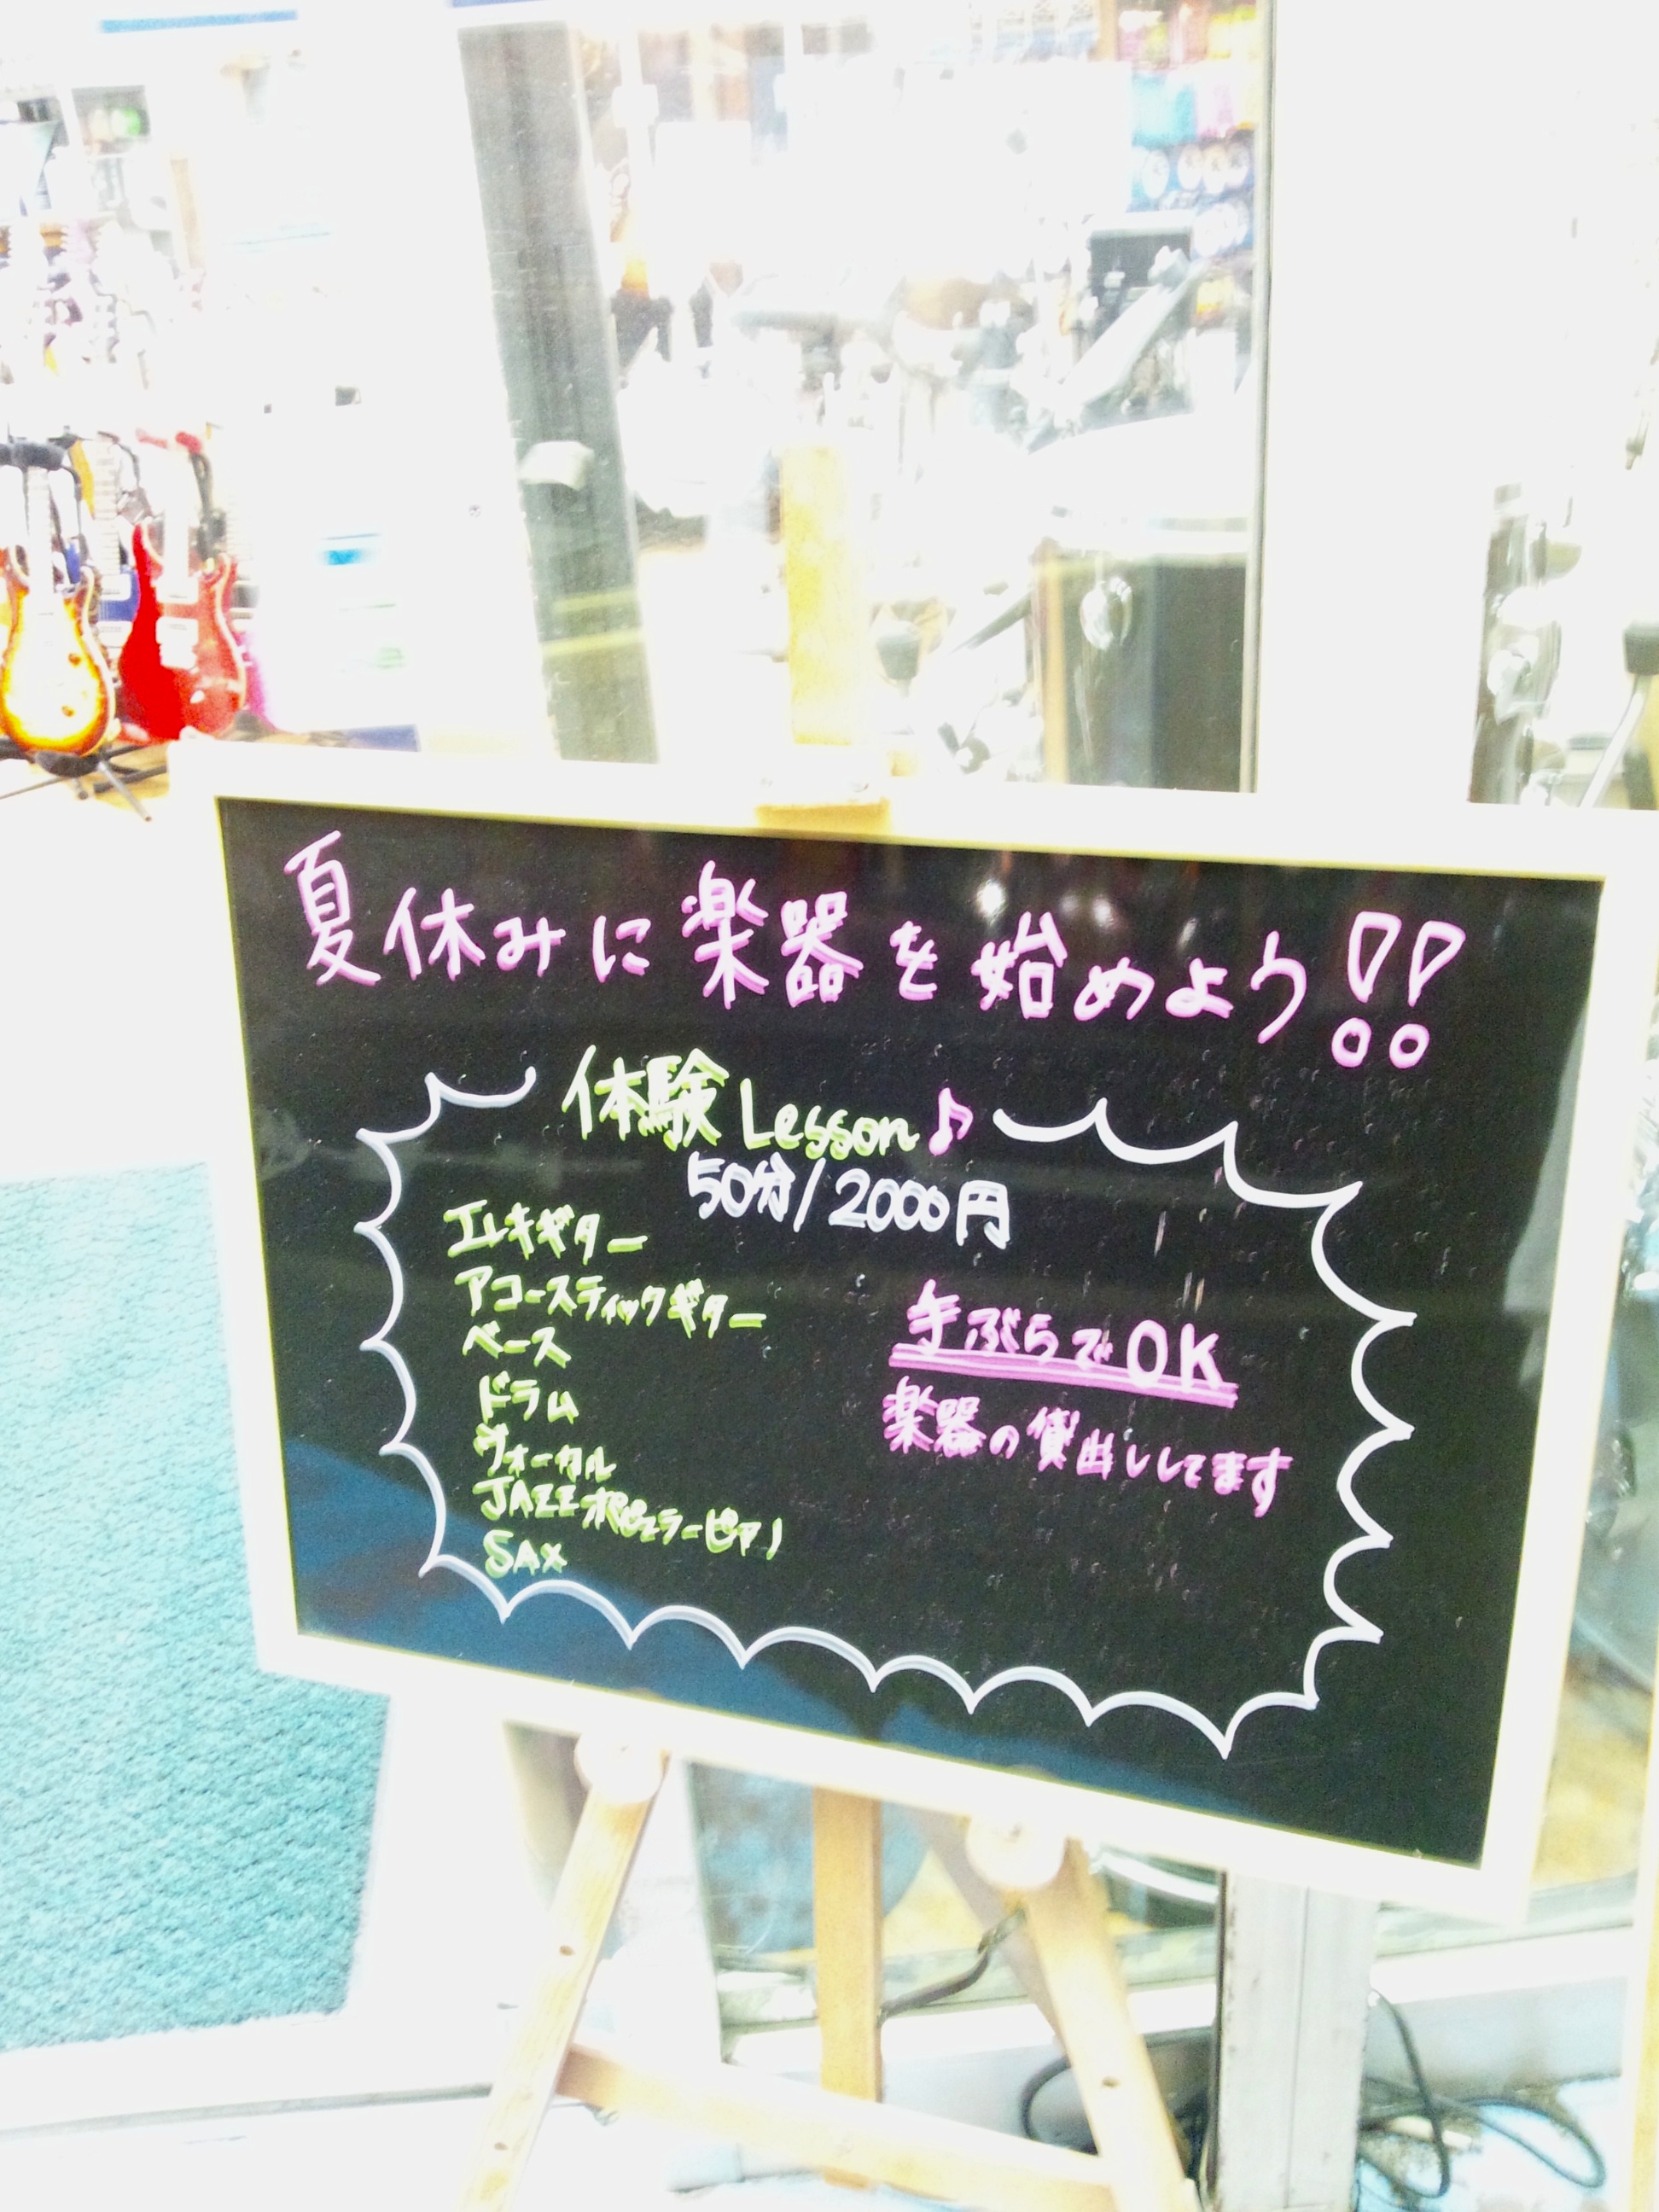 夏休みに楽器を始めよう!!
体験Lesson♪
50分/2000円
エレキギター
アコースティックギター
ベース
ドラム
ヴォーカル
JAZZポピュラーピアノ
SAX
手ぶらでOK
楽器の貸出ししてます